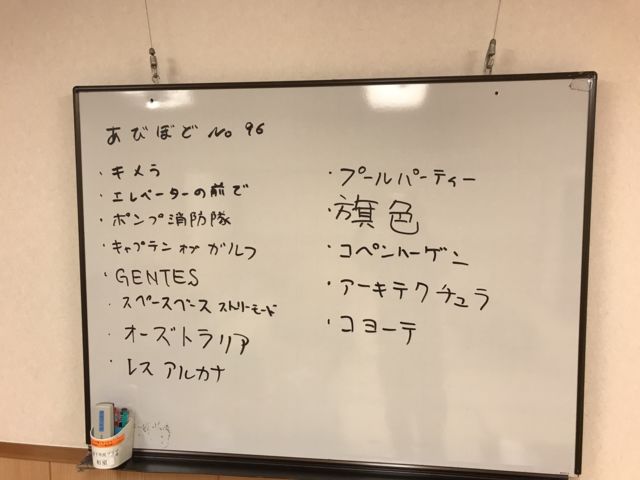 あびぼど No 96
・キメラ
・エレベーターの前で
・ポンプ消防隊
・キャプテン オブ ガルフ
・GENTES
・スペースベース ストリーモード
・オーズトラリア
・レス アルカナ
・プールパーティー
・旗色
・コペンハーゲン
・アーキテクチュラ
・コヨーテ